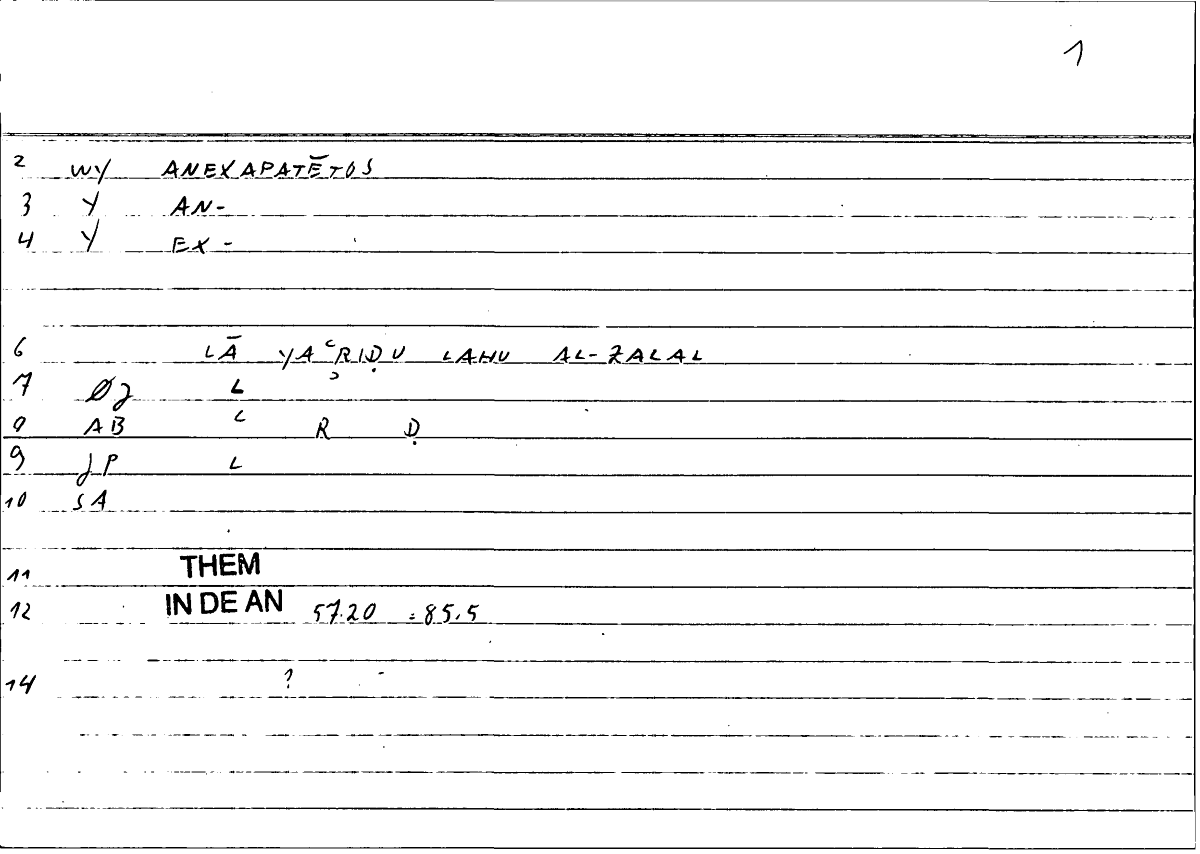 1
2 WY ANEXAPATĒTOS
3 Y AN-
4 Y EX-
6 LĀ YAʿRIḌU LAHU AL-ZALAL
7 ØJ L
8 AB ʿ R Ḍ
9 JP L
10 SA
11 THEM
12 IN DE AN 57.20 : 85.5
14 ?